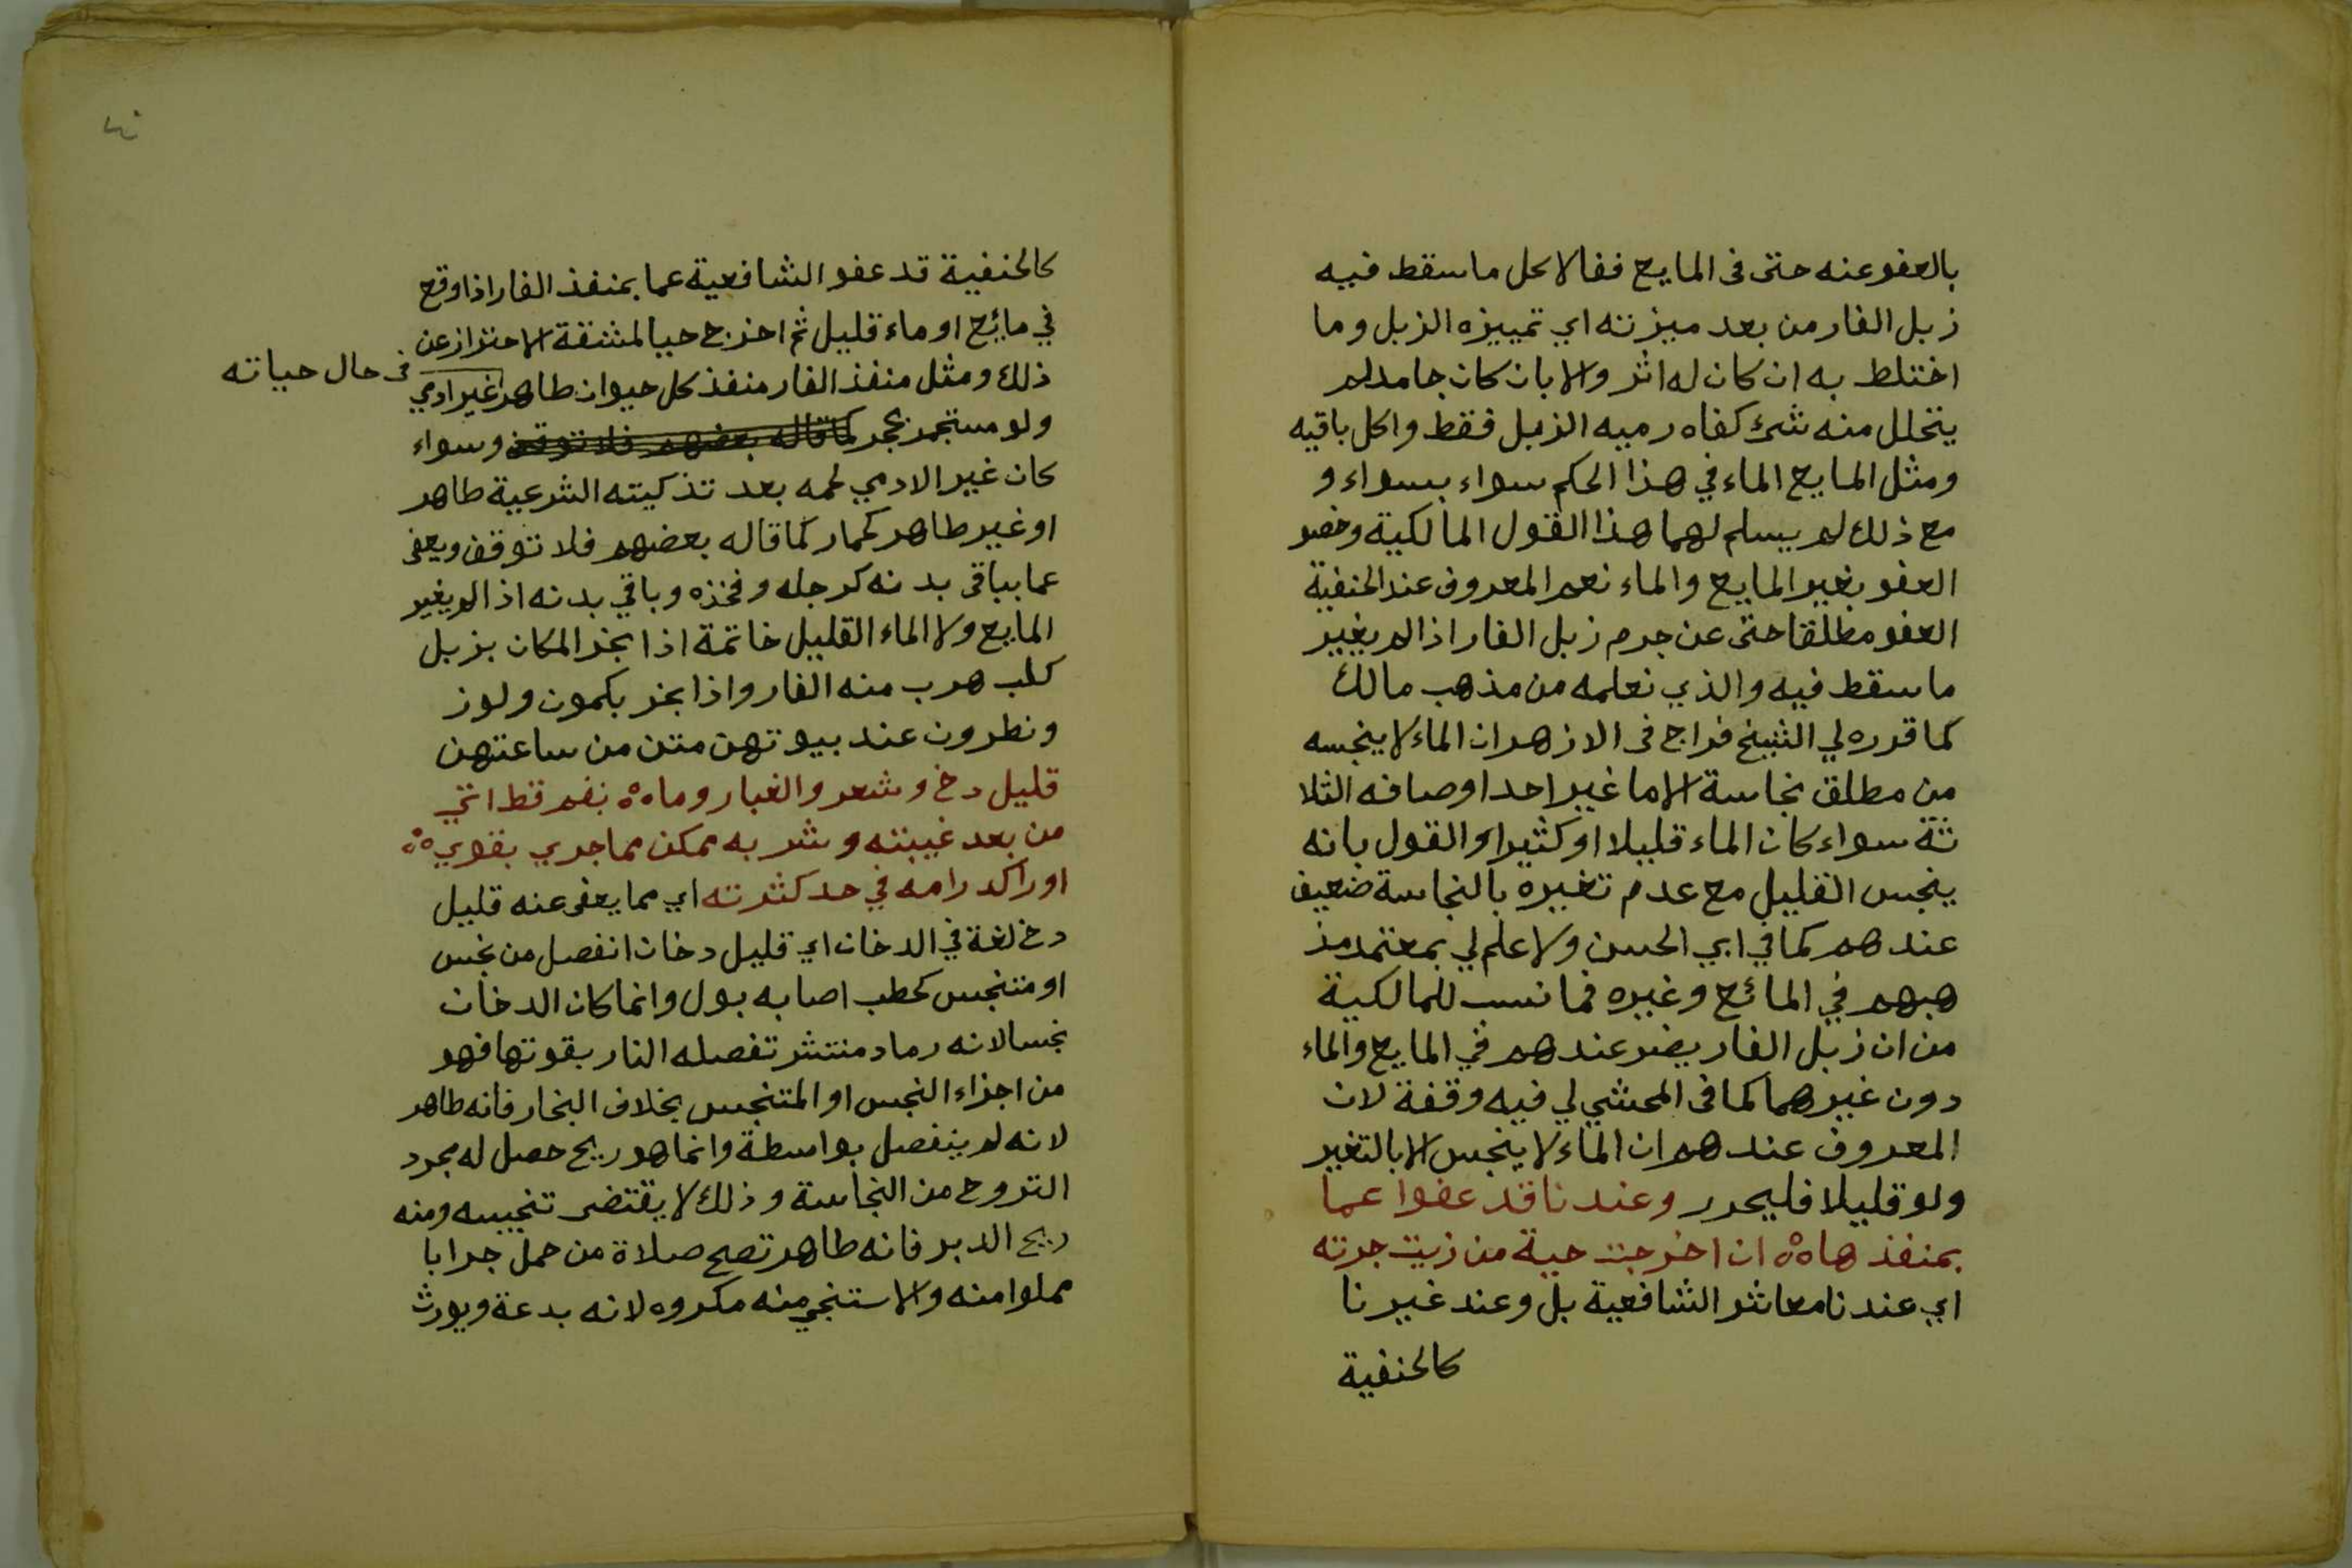 بالعفو عنه حتى فى المايع فقالا كل ما سقط فيه
زبل الفار من بعد ميزته اي تمييزه الزبل وما
اختلط به ان كان له اثر والا بان كان جامدا لم
يتحلل منه شئ كفاه رميه الزبل فقط واكل باقيه
ومثل المايع الماء في هذا الحكم سواء بسواء و
مع ذلك لم يسلم لهما هذا القول المالكية وخصو
العفو بغير المايع والماء نعم المعروف عند الحنفية
العفو مطلقا حتى عن جرم زبل الفار اذا لم يغيير
ما سقط فيه والذي نعلمه من مذهب مالك
كما قرره لي الشيخ فراج فى الازهر ان الماء لا ينجسه
من مطلق نجاسة الا ما غير احد اوصافه الثلا
ثة سواء كان الماء قليلا او كثيرا والقول بانه
ينجس القليل مع عدم تغيره بالنجاسة ضعيف
عندهم كما في ابي الحسن ولا علم لي بمعتمد مذ
هبهم في المائع وغيره فما نسب للمالكية
من ان زبل الفار يضر عندهم في المايع والماء
دون غيرهما كما فى المحشي لي فيه وقفة لان
المعروف عندهم ان الماء لا ينجس الا بالتغير
ولو قليلا فليحرر وعندنا قد عفوا عما
بمنفذها ۵ ان اخرجت حية من زيت جرته
اي عندنا معاشر الشافعية بل وعند غيرنا
كالحنفية
كالحنفية قد عفو الشافعية عما بمنفذ الفار اذا وقع
في مائع او ماء قليل ثم اخرج حيا لمشقة الاحتراز عن
ذلك ومثل منفذ الفار منفذ كل حيوان طاهر غير ادمي
فى حال حياته
ولو مستجمر بحجر كما قاله بعضهم فلا توقف وسواء
كان غير الادمي لحمه بعد تذكيته الشرعية طاهر
او غير طاهر كحمار كما قاله بعضهم فلا توقف ويعفى
عما بباقى بدنه كرجله وفخذه وباقي بدنه اذا لم يغير
المايع ولا الماء القليل خاتمة اذا بخر المكان بزبل
كلب هرب منه الفار واذا بخر بكمون ولوز
ونطرون عند بيوتهن متن من ساعتهن
قليل دخ وشعر والغبار وما ۵ بفم قط اتي
من بعد غيبته وشربه ممكن مما جري بقوي ۵
او راكد رامه في حد كثرته اي مما يعفى عنه قليل
دخ لغة في الدخان اي قليل دخان انفصل من نجس
او متنجس كحطب اصابه بول وانما كان الدخان
نجسا لانه رماد منتشر تفصله النار بقوتها فهو
من اجزاء النجس او المتنجس بخلاف البخار فانه طاهر
لانه لم ينفصل بواسطة وانما هو ريح حصل له مجرد
التروح من النجاسة وذلك لا يقتضى تنجيسه ومنه
ريح الدبر فانه طاهر تصح صلاة من حمل جرابا
مملوا منه والاستنجي منه مكروه لانه بدعة ويورث